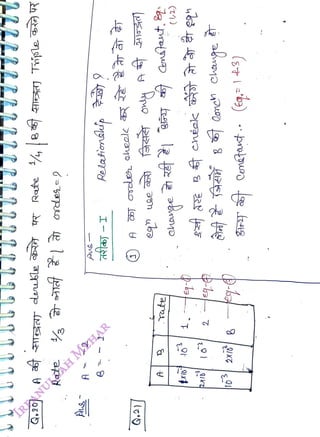 Q.20) A की सान्द्रता double करने पर Rate 1/4 | B की सान्द्रता Triple करने पर
Rate 1/3 हो जाती है | तो order=?
Ans:-
A = -2
B = -1
Q.21)
A B rate
1×10⁻³ 10⁻³ 1. — Eq-①
2×10⁻³ 10⁻³ 2 — Eq-②
10⁻³ 2×10⁻³ 8 — Eq-③
Ans:-
तरीका - I Relationship देखो?
① A का order check कर रहे है तो वो दो
eqn use करो जिसमें only A की सान्द्रता
change हो रही है| अन्य की Constant. Eq. (1,2)
इसी तरह B की check करेंगे तो वो दो Eqn
लेनी है जिसमें B की Conch change हो
अन्य की Constant.. (Eq. = 1 + 3)
IRFANULLAH MAZHAR